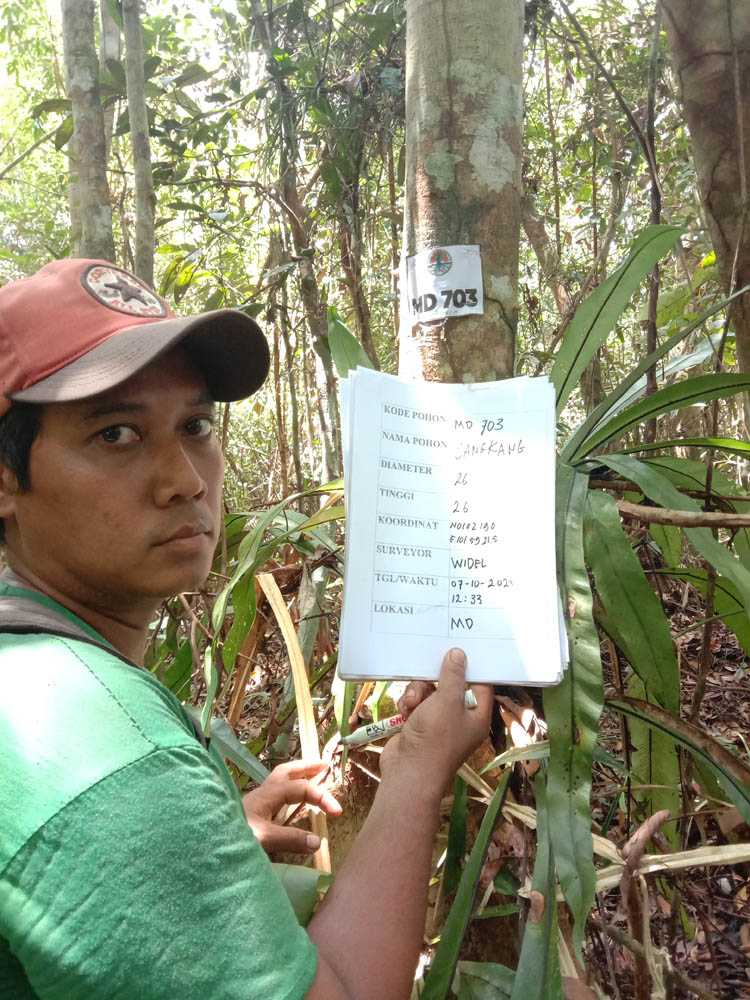 MD 703
KODE POHON MD 703
NAMA POHON JANGKANG
DIAMETER 26
TINGGI 26
KOORDINAT N0102190
E1015921.5
SURVEYOR WIDEL
TGL/WAKTU 07-10-202
12:33
LOKASI MD